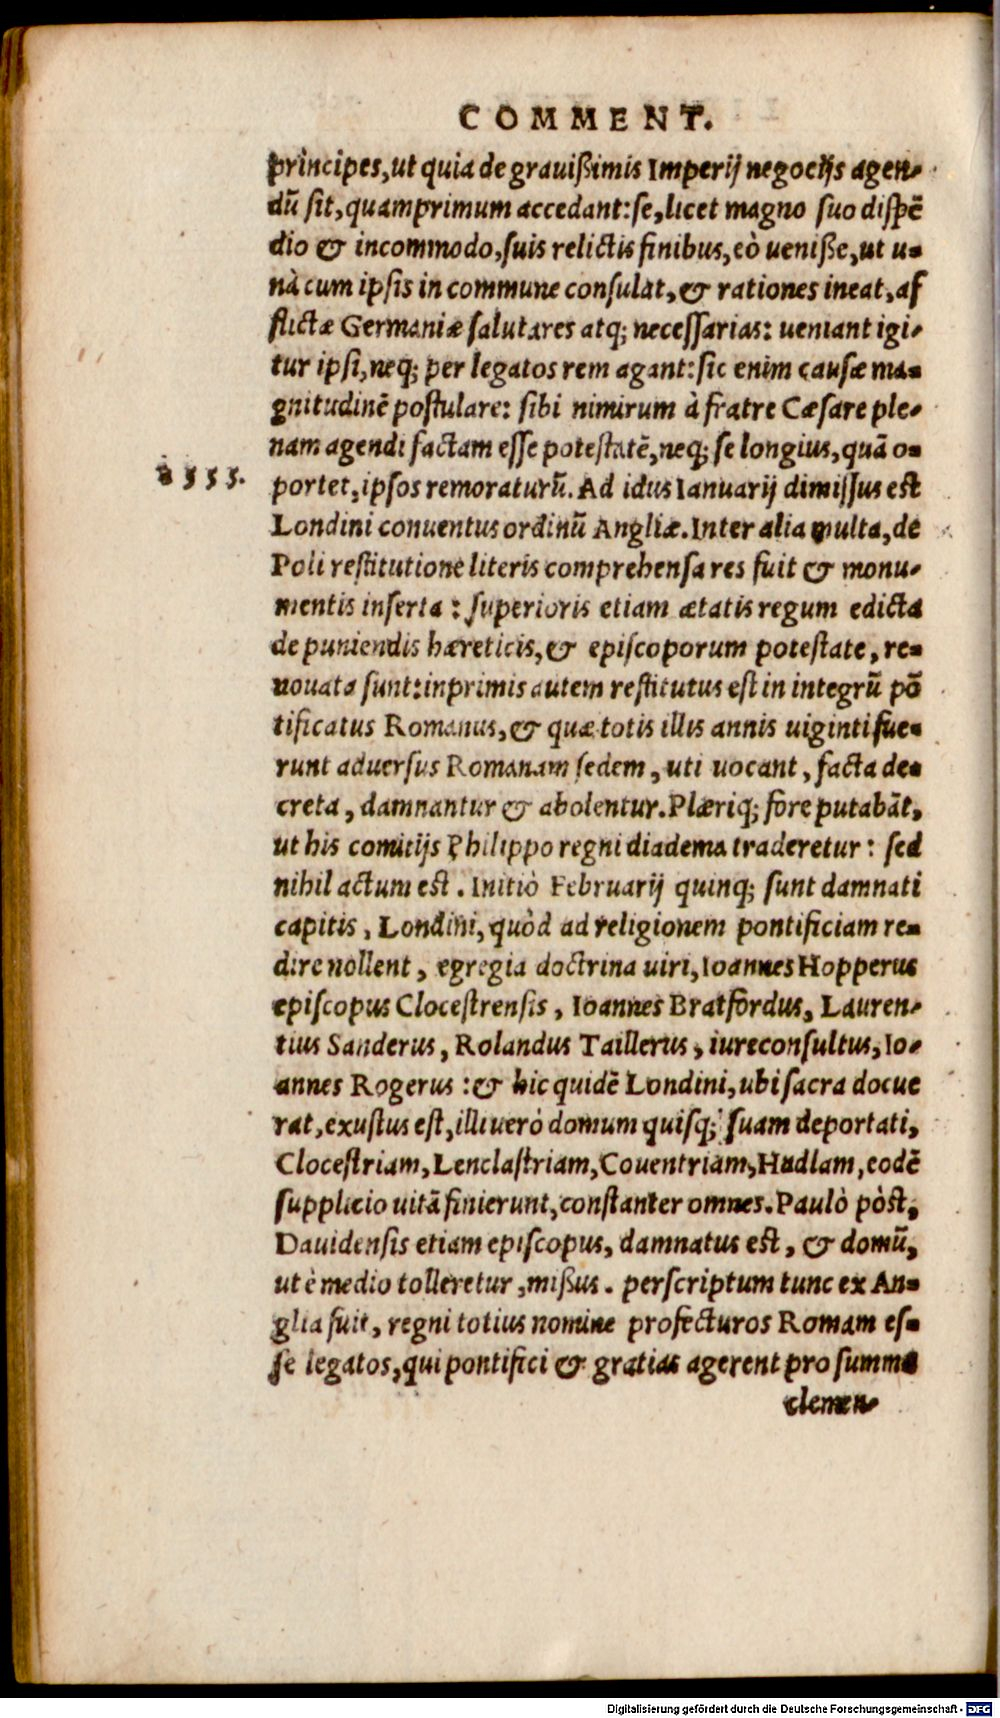 COMMENT.
principes, ut quia de grauißimis Imperij negocijs agen-
dũ sit, quamprimum accedant: se, licet magno suo dispē
dio & incommodo, suis relictis finibus, eò ueniße, ut u-
nà cum ipsis in commune consulat, & rationes ineat, af
flictæ Germaniæ salutares atq; necessarias: ueniant igi-
tur ipsi, neq; per legatos rem agant: sic enim causæ ma-
gnitudinē postulare: sibi nimirum à fratre Cæsare ple-
nam agendi factam esse potestatē, neq; se longius, quā o-
1555.
portet, ipsos remoraturũ. Ad idus Ianuarij dimissus est
Londini conuentus ordinũ Angliæ. Inter alia multa, de
Poli restitutione literis comprehensa res fuit & monu-
mentis inserta: superioris etiam ætatis regum edicta
de puniendis hæreticis, & episcoporum potestate, re-
nouata sunt: inprimis autem restitutus est in integrũ pō
tificatus Romanus, & quæ totis illis annis uiginti fue-
runt aduersus Romanam sedem, uti uocant, facta de-
creta, damnantur & abolentur. Plæriq; fore putabāt,
ut his comitijs Philippo regni diadema traderetur: sed
nihil actum est. Initiò Februarij quinq; sunt damnati
capitis, Londini, quòd ad religionem pontificiam re-
dire nollent, egregia doctrina uiri, Ioannes Hopperus
episcopus Clocestrensis, Ioannes Bratfordus, Lauren-
tius Sanderus, Rolandus Taillerus, iureconsultus, Io-
annes Rogerus: & hic quidē Londini, ubi sacra docue
rat, exustus est, illi uerò domum quisq; suam deportati,
Clocestriam, Lenclastriam, Couentriam, Hadlam, eodē
supplicio uitā finierunt, constanter omnes. Paulò pòst,
Dauidensis etiam episcopus, damnatus est, & domũ,
ut è medio tolleretur, mißus. perscriptum tunc ex An-
glia fuit, regni totius nomine profecturos Romam es-
se legatos, qui pontifici & gratias agerent pro summa
clemen-
Digitalisierung gefördert durch die Deutsche Forschungsgemeinschaft - DFG